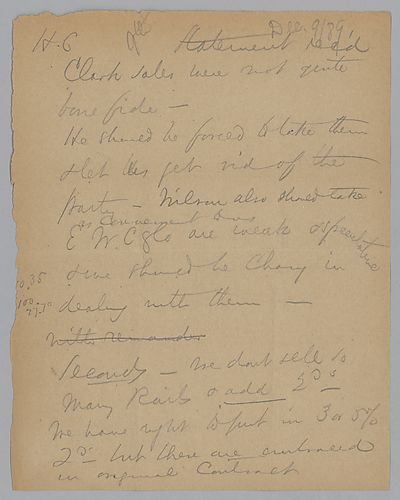 H. G Dec 9/89
Statement rec'd
Clark sales were not quite
bona fide —
He should be forced to take them
& let us get rid of the
party — Wilson also should take
as Convenient
E. W. C & Co are weak & speculative
& we should be Chary in
dealing with them —
with remainder
Seconds — We dont sell so
many Rails & add 2ds
We have right to put in 3 or 5%
2ds but these are embraced
in original Contract
10.35
100.